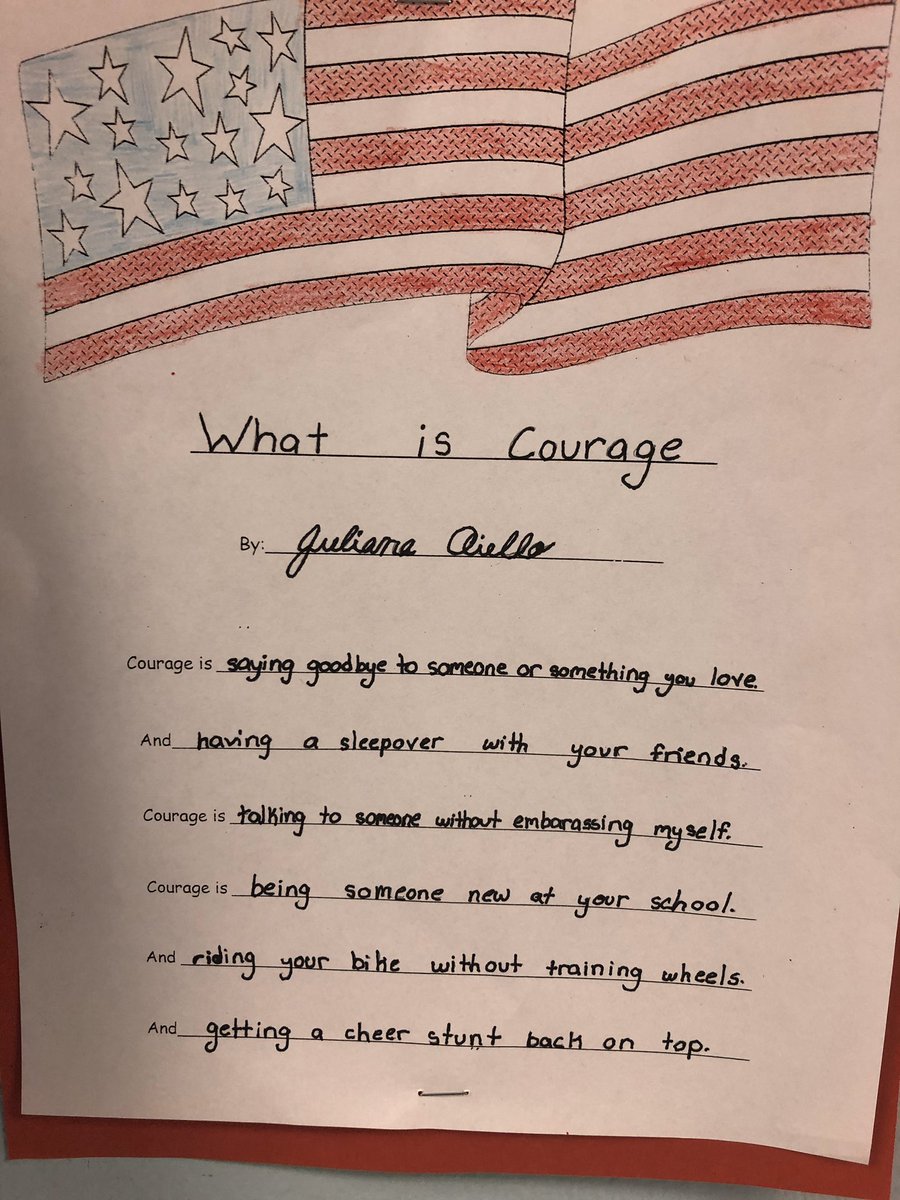 What is Courage
By: Juliana Aiello
Courage is saying goodbye to someone or something you love.
And having a sleepover with your friends.
Courage is talking to someone without embarassing myself.
Courage is being someone new at your school.
And riding your bike without training wheels.
And getting a cheer stunt back on top.